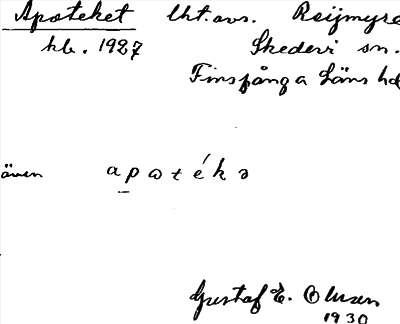 Apoteket lht. avs. Reijmyre
kb. 1927 Skedevi sn.
Finspånga Läns hd
även apotéks
Gustaf E. Olsson
1930